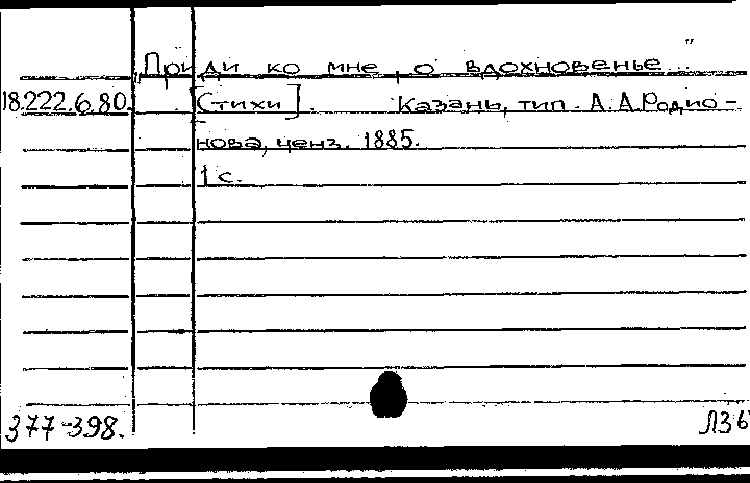 „Приди ко мне, о вдохновенье..."
18.222.6.80. [Стихи]. Казань, тип. А.А.Родио-
нова, ценз. 1885.
1 с.
377-398.